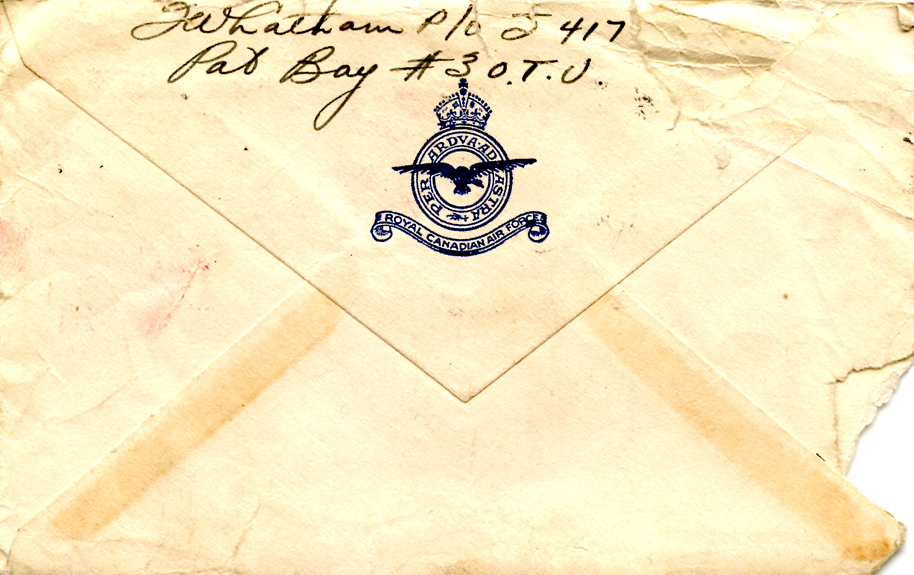 J Whatham P/O J 417
Pat Bay #3 O.T.U.
PER ARDVA AD ASTRA
ROYAL CANADIAN AIR FORCE